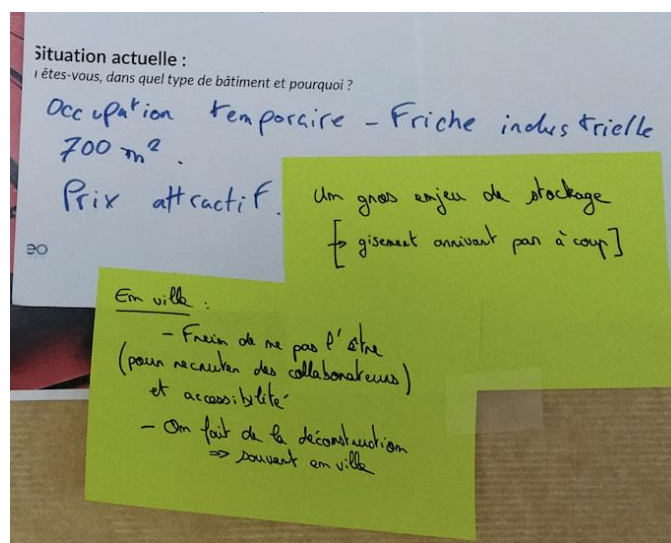 Situation actuelle :
êtes-vous, dans quel type de bâtiment et pourquoi ?
Occupation temporaire - Friche industrielle
700 m².
Prix attractif.
Un gros enjeu de stockage
[→ gisement arrivant par à coup]
En ville :
- Frein de ne pas l'être
(pour recruter des collaborateurs)
et accessibilité
- On fait de la déconstruction
⇒ souvent en ville